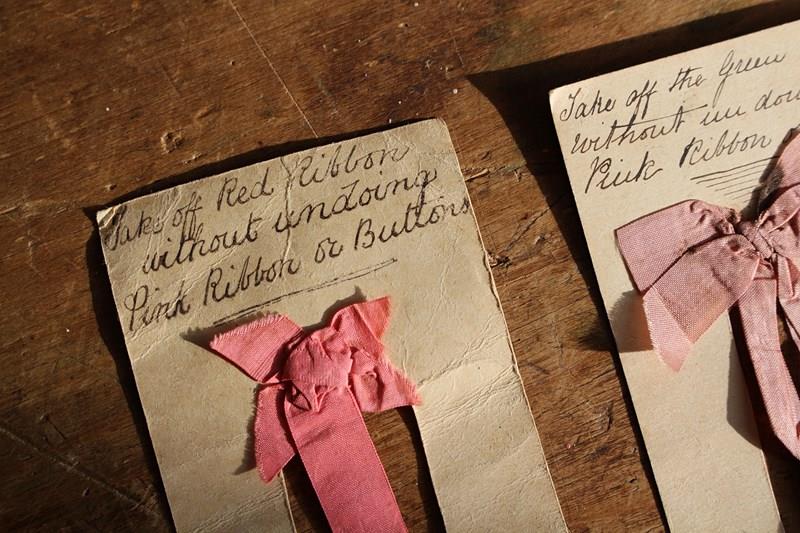 Take off Red Ribbon
without undoing
Pink Ribbon or Buttons
Take off the Green
without un doin
Pink Ribbon